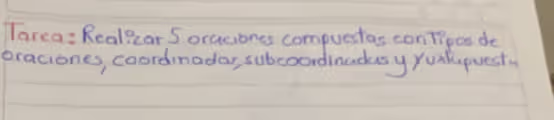 Tarea: Realizar 5 oraciones compuestas con Tipos de
oraciones, coordinadas, subcoordinadas y yuxtapuest